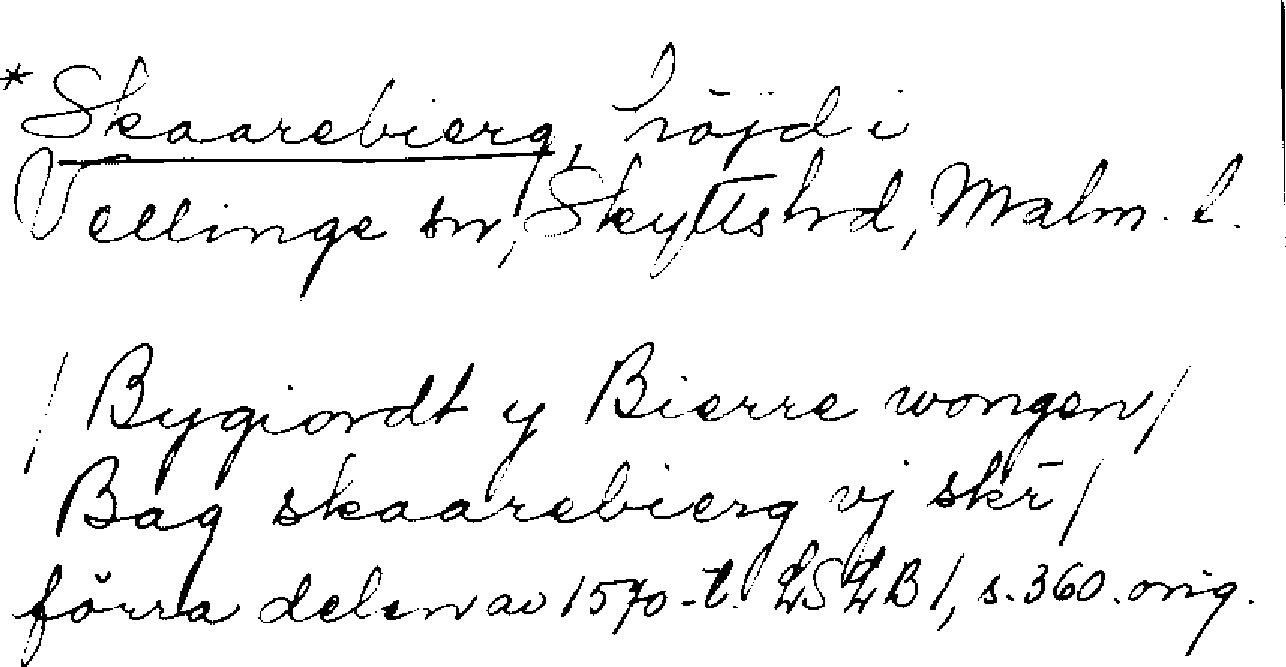 *Skaarebierg, höjd i
Vellinge sn, Skytts hd, Malm. l.
/Bygiordt y Bierre wongen/
Bag skaarebierg vj skr̄/
förra delen av 1570-t. LSLB 1, s. 360. orig.